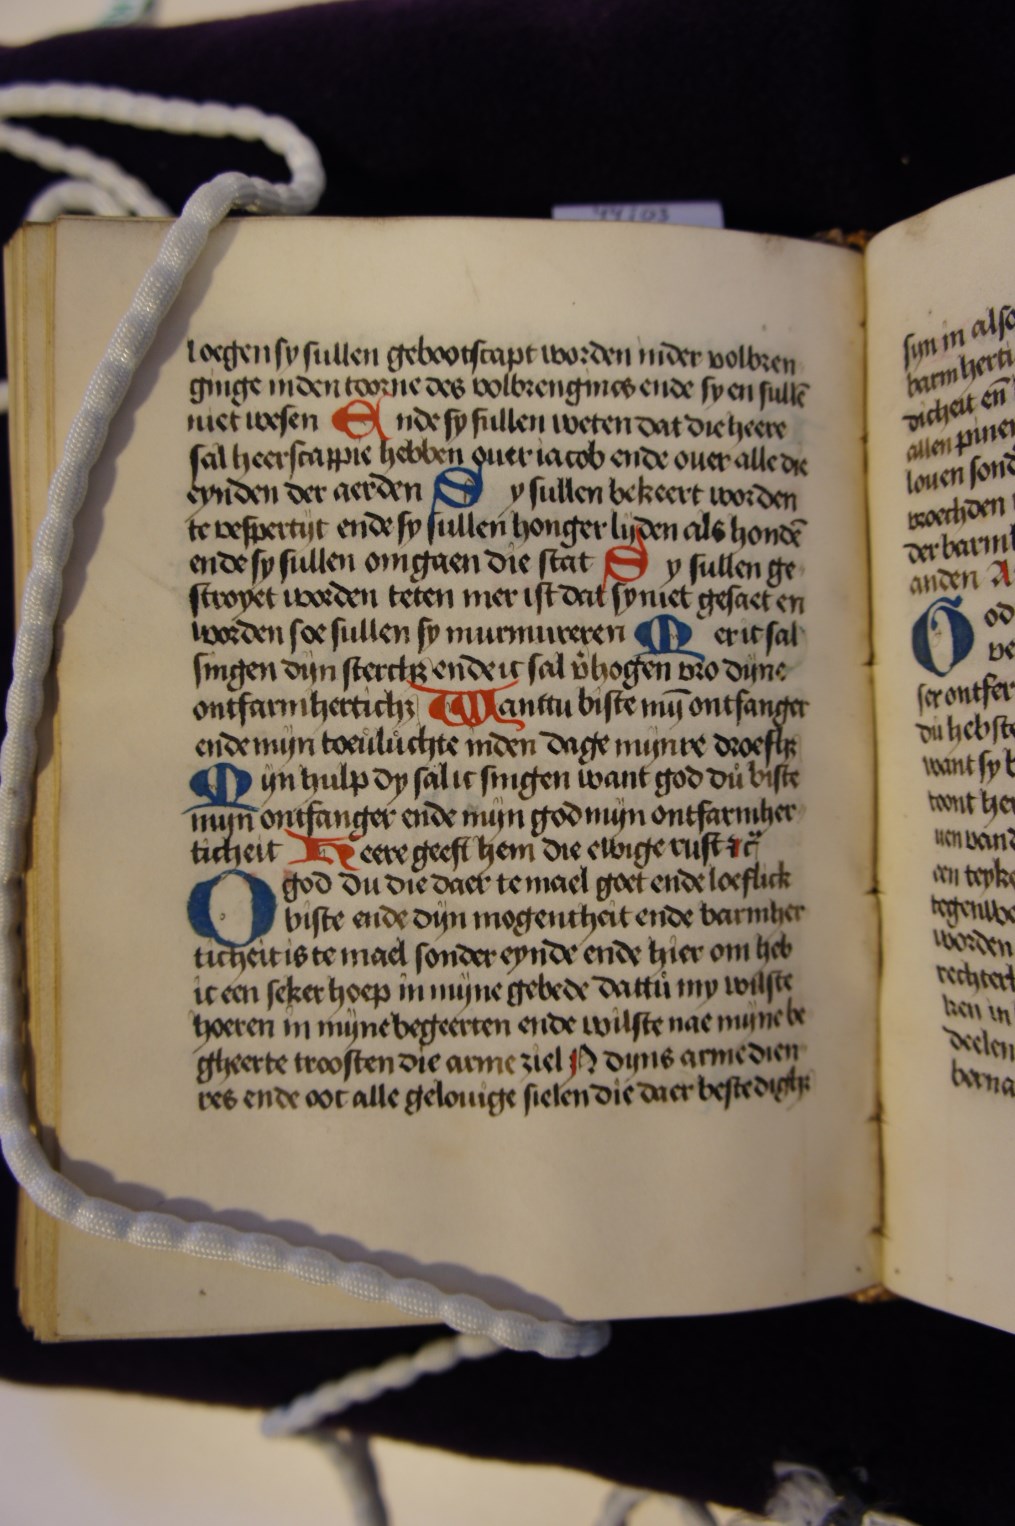 44103
loegen sy sullen gebootscapt worden inder volbren
ginge inden toorne des volbrengines ende sy en sullē
niet wesen Ende sy sullen weten dat die heere
sal heerscappie hebben ouer iacob ende ouer alle die
eynden der aerden Sy sullen bekeert worden
te vespertijt ende sy sullen honger lyden als hondē
ende sy sullen omgaen die stat Sy sullen ge
stroyet worden teten mer ist dat sy niet gesaet en
worden soe sullen sy murmureren Mer ic sal
singen dijn sterckꝫ ende ic sal v̄hogen vro dijne
ontfarmherticꝫ Want tu biste mȳ ontfanger
ende mijn toeuluchte inden dage mijnre droefhꝫ
Mijn hulp dy sal ic singen want god du biste
mijn ontfanger ende mijn god mijn ontfarmher
ticheit Heere geeft hem die ewige rust ⁊c̄
O god du die daer te mael goet ende loeflick
biste ende dijn mogentheit ende barmher
ticheit is te mael sonder eynde ende hier om heb
ic een seker hoep in mijne gebede dattu my wilste
hoeren in mijne begeerten ende wilste nae mijne be
gheerte troosten die arme ziel N dijns arme dien
res ende ooc alle gelouige sielen die daer bestedighꝫ
syn in also
barmherti
dicheit en̄
allen pinen
louen sond
vroechden
der barmh
anden A
God
ve
ser ontfer
du hebste
want sy b
toont her
uen vand
een teyke
tegenwo
worden
rechterh
ken in
deelen
berna